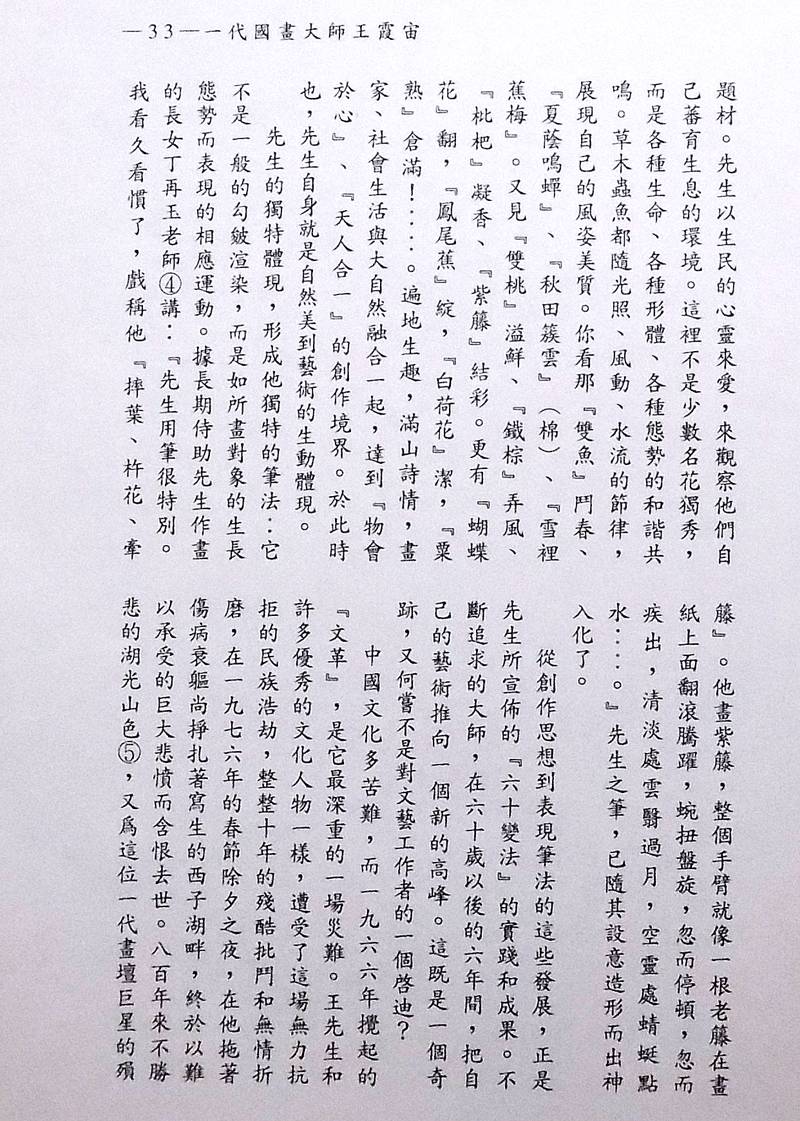 —33—一代國畫大師王霞宙
題材。先生以生民的心靈來愛，來觀察他們自
己蕃育生息的環境。這裡不是少數名花獨秀，
而是各種生命、各種形體、各種態勢的和諧共
鳴。草木蟲魚都隨光照、風動、水流的節律，
展現自己的風姿美質。你看那『雙魚』鬥春、
『夏蔭鳴蟬』、『秋田簇雲』（棉）、『雪裡
蕉梅』。又見『雙桃』溢鮮、『鐵棕』弄風、
『枇杷』凝香、『紫籐』結彩。更有『蝴蝶
花』翻，『鳳尾蕉』綻，『白荷花』潔，『粟
熟』倉滿！⋯⋯。遍地生趣，滿山詩情，畫
家、社會生活與大自然融合一起，達到『物會
於心』、『天人合一』的創作境界。於此時
也，先生自身就是自然美到藝術的生動體現。
先生的獨特體現，形成他獨特的筆法：它
不是一般的勾皴渲染，而是如所畫對象的生長
態勢而表現的相應運動。據長期侍助先生作畫
的長女丁再玉老師④講：『先生用筆很特別。
我看久看慣了，戲稱他『摔葉、杵花、牽
籐』。他畫紫籐，整個手臂就像一根老籐在畫
紙上面翻滾騰躍，蜿扭盤旋，忽而停頓，忽而
疾出，清淡處雲翳過月，空靈處蜻蜓點
水⋯⋯。』先生之筆，已隨其設意造形而出神
入化了。
從創作思想到表現筆法的這些發展，正是
先生所宣佈的『六十變法』的實踐和成果。不
斷追求的大師，在六十歲以後的六年間，把自
己的藝術推向一個新的高峰。這既是一個奇
跡，又何嘗不是對文藝工作者的一個啓迪？
中國文化多苦難，而一九六六年攪起的
『文革』，是它最深重的一場災難。王先生和
許多優秀的文化人物一樣，遭受了這場無力抗
拒的民族浩劫，整整十年的殘酷批鬥和無情折
磨，在一九七六年的春節除夕之夜，在他拖著
傷病衰軀尚掙扎著寫生的西子湖畔，終於以難
以承受的巨大悲憤而含恨去世。八百年來不勝
悲的湖光山色⑤，又爲這位一代畫壇巨星的殞